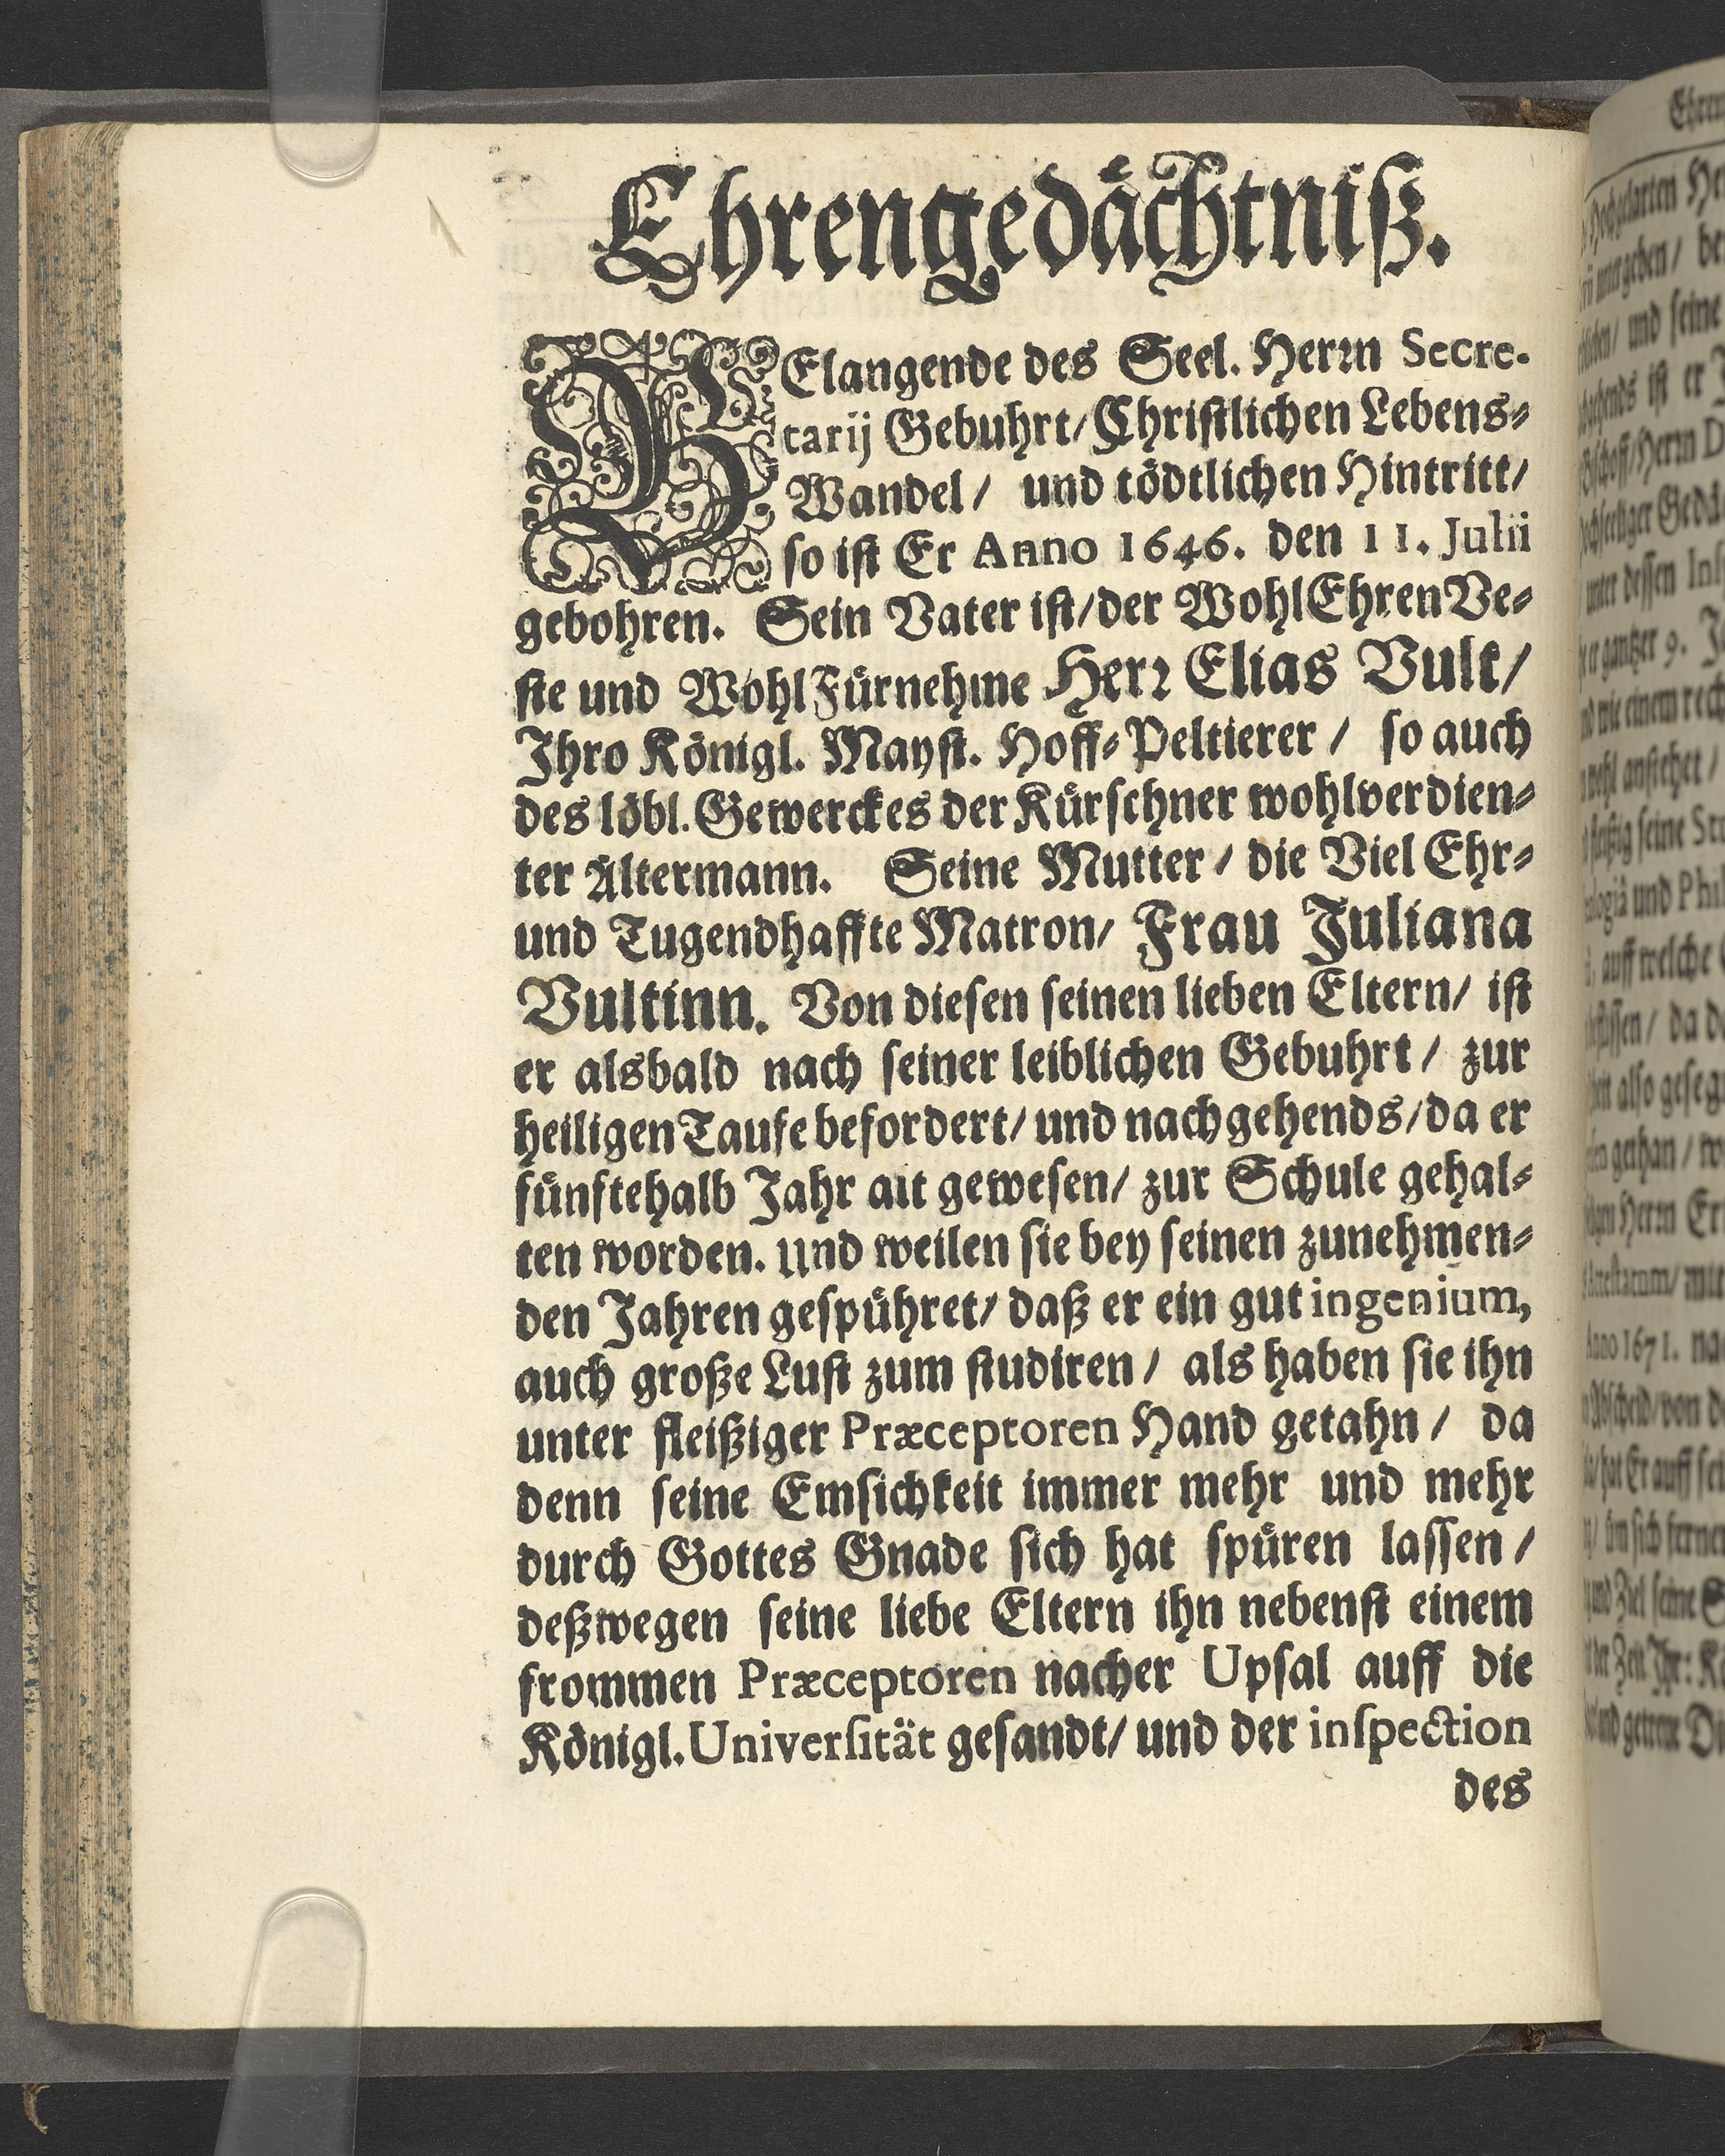 Ehrengedächtniß.
BElangende des Seel. Herrn Secre-
tarij Gebuhrt/ Christlichen Lebens-
Wandel/ und tödtlichen Hintritt/
so ist Er Anno 1646. den 11. Julii
gebohren. Sein Vater ist/ der WohlEhrenVe-
ste und WohlFürnehme Herr Elias Vult/
Ihro Königl. Mayst. Hoff-Peltierer/ so auch
des löbl. Gewerckes der Kürschner wohlverdien-
ter Altermann. Seine Mutter/ die Viel Ehr-
und Tugendhaffte Matron/ Frau Juliana
Vultinn. Von diesen seinen lieben Eltern/ ist
er alsbald nach seiner leiblichen Gebuhrt/ zur
heiligen Taufe befordert/ und nachgehends/ da er
fünftehalb Jahr alt gewesen/ zur Schule gehal-
ten worden. und weilen sie bey seinen zunehmen-
den Jahren gespühret/ daß er ein gut ingenium,
auch große Lust zum studiren/ als haben sie ihn
unter fleißiger Præceptoren Hand getahn/ da
denn seine Emsichkeit immer mehr und mehr
durch Gottes Gnade sich hat spüren lassen/
deßwegen seine liebe Eltern ihn nebenst einem
frommen Præceptoren nacher Upsal auff die
Königl. Universität gesandt/ und der inspection
des